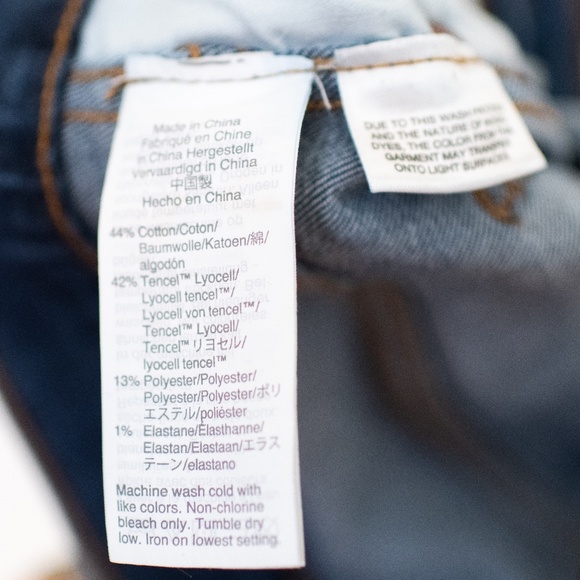 Made in China
Fabriqué en Chine
in China Hergestellt
Vervaardigd in China
中国製
Hecho en China
44% Cotton/Coton/
Baumwolle/Katoen/綿/
algodón
42% Tencel™ Lyocell/
Lyocell tencel™/
Lyocell von tencel™/
Tencel™ Lyocell/
Tencel™ リヨセル/
lyocell tencel™
13% Polyester/Polyester/
Polyester/Polyester/ポリ
エステル/poliéster
1% Elastane/Élasthanne/
Elastan/Elastaan/エラス
テーン/elastano
Machine wash cold with
like colors. Non-chlorine
bleach only. Tumble dry
low. Iron on lowest setting.
DUE TO THIS WASH PROCESS
AND THE NATURE OF
DYES, THE COLOR FROM
GARMENT MAY TRANSFER
ONTO LIGHT SURFACES